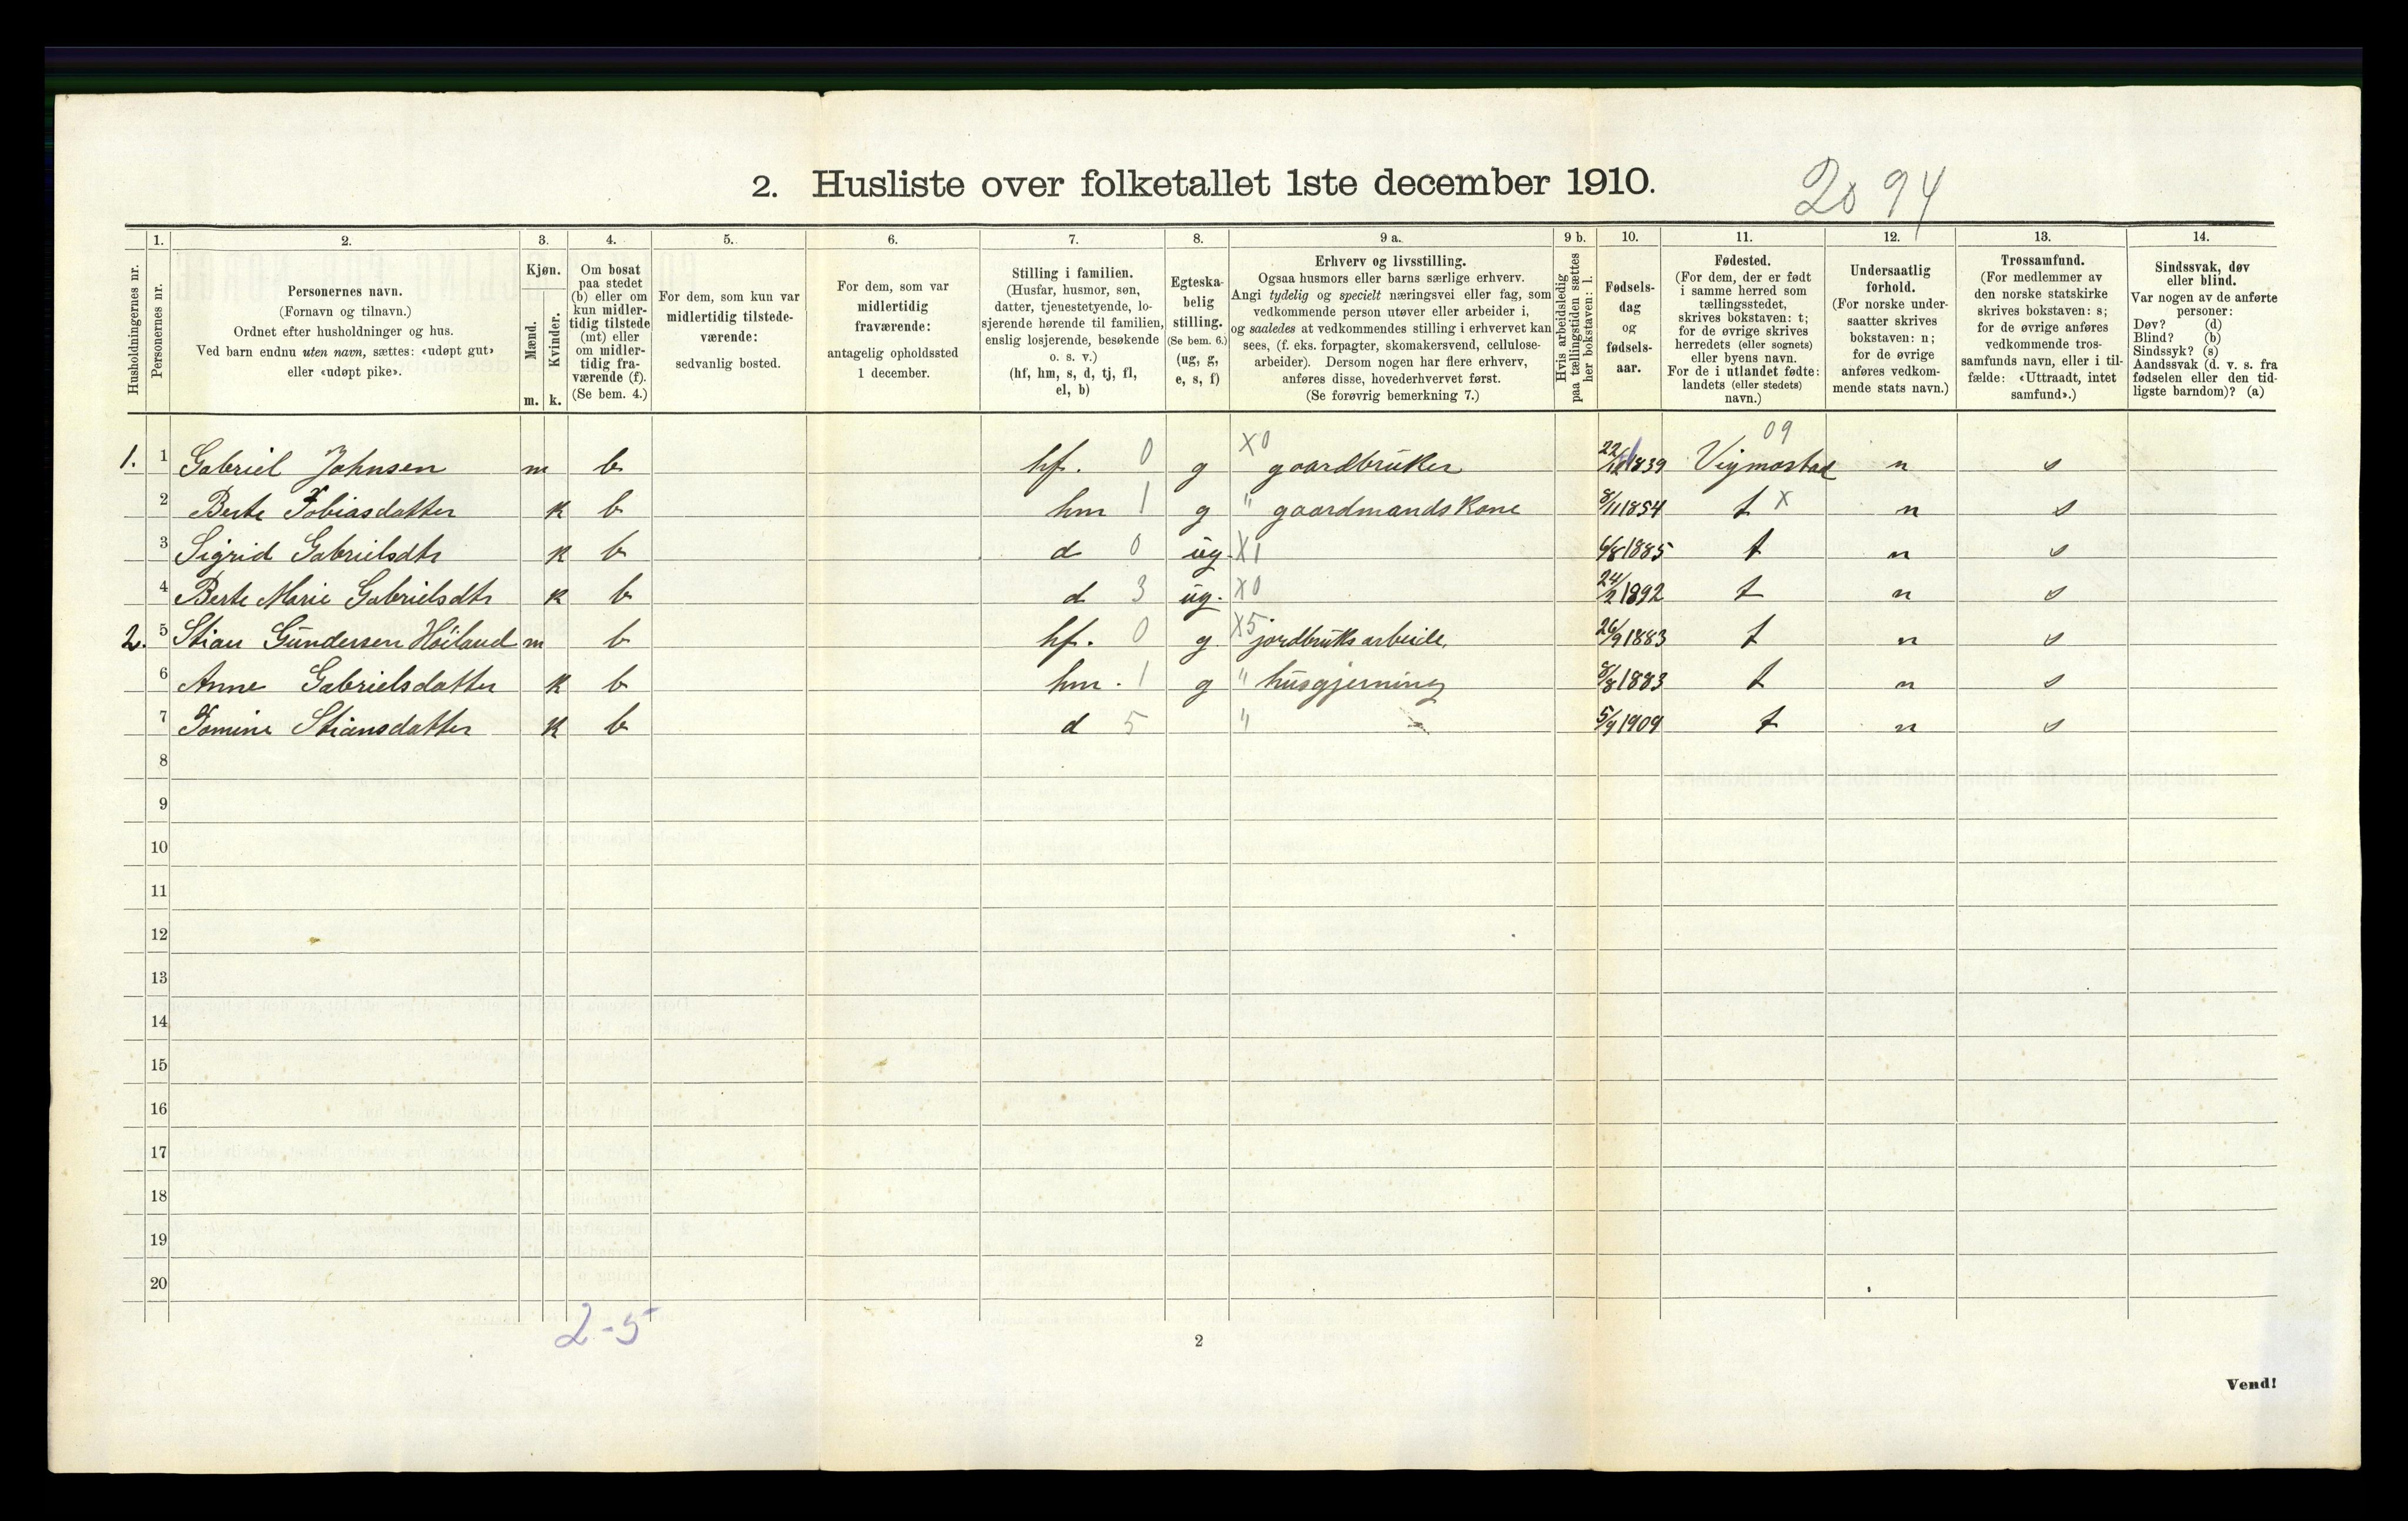 2. Husliste over folketallet 1ste december 1910.
2094
1. 2. 3. 4. 5. 6. 7. 8. 9 a. 9 b. 10. 11. 12. 13. 14.
Husholdningernes nr.
Personernes nr.
Personernes navn.
(Fornavn og tilnavn.)
Ordnet efter husholdninger og hus.
Ved barn endnu uten navn, sættes: «udøpt gut»
eller «udøpt pike».
Kjøn.
Mænd.
Kvinder.
m. k.
Om bosat
paa stedet
(b) eller om
kun midler-
tidig tilstede
(mt) eller
om midler-
tidig fra-
værende (f).
(Se bem. 4.)
For dem, som kun var
midlertidig tilstede-
værende:
sedvanlig bosted.
For dem, som var
midlertidig
fraværende:
antagelig opholdssted
1 december.
Stilling i familien.
(Husfar, husmor, søn,
datter, tjenestetyende, lo-
sjerende hørende til familien,
enslig losjerende, besøkende
o. s. v.)
(hf, hm, s, d, tj, fl,
el, b)
Egteska-
belig
stilling.
(Se bem. 6.)
(ug, g,
e, s, f)
Erhverv og livsstilling.
Ogsaa husmors eller barns særlige erhverv.
Angi tydelig og specielt næringsvei eller fag, som
vedkommende person utøver eller arbeider i,
og saaledes at vedkommendes stilling i erhvervet kan
sees, (f. eks. forpagter, skomakersvend, cellulose-
arbeider). Dersom nogen har flere erhverv,
anføres disse, hovederhvervet først.
(Se forøvrig bemerkning 7.)
Hvis arbeidsledig
paa tællingstiden sættes
her bokstaven: l.
Fødsels-
dag
og
fødsels-
aar.
Fødested.
(For dem, der er født
i samme herred som
tællingsstedet,
skrives bokstaven: t;
for de øvrige skrives
herredets (eller sognets)
eller byens navn.
For de i utlandet fødte:
landets (eller stedets)
navn.)
Undersaatlig
forhold.
(For norske under-
saatter skrives
bokstaven: n;
for de øvrige
anføres vedkom-
mende stats navn.)
Trossamfund.
(For medlemmer av
den norske statskirke
skrives bokstaven: s;
for de øvrige anføres
vedkommende tros-
samfunds navn, eller i til-
fælde: «Uttraadt, intet
samfund».)
Sindssvak, døv
eller blind.
Var nogen av de anførte
personer:
Døv? (d)
Blind? (b)
Sindssyk? (s)
Aandssvak (d. v. s. fra
fødselen eller den tid-
ligste barndom)? (a)
09
1. 1 Gabriel Johnsen m b hf. 0 g X0 gaardbruker 22/12 1839 Vigmostad n s
2 Berte Tobiasdatter k b hm 1 g " gaardmandskone 8/11 1854 t x n s
3 Sigrid Gabrielsdtr k b d 0 ug. X1 6/8 1885 t n s
4 Berte Marie Gabrielsdtr k b d 3 ug. X0 24/2 1892 t n s
2. 5 Stian Gundersen Höiland m b hf. 0 g X5 jordbruksarbeide. 26/9 1883 t n s
6 Anne Gabrielsdatter k b hm. 1 g " husgjerning 8/8 1883 t n s
7 Tomine Stiansdatter k b d 5 " 5/9 1909 t n s
8
9
10
11
12
13
14
15
16
17
18
19
20
2-5
2
Vend!